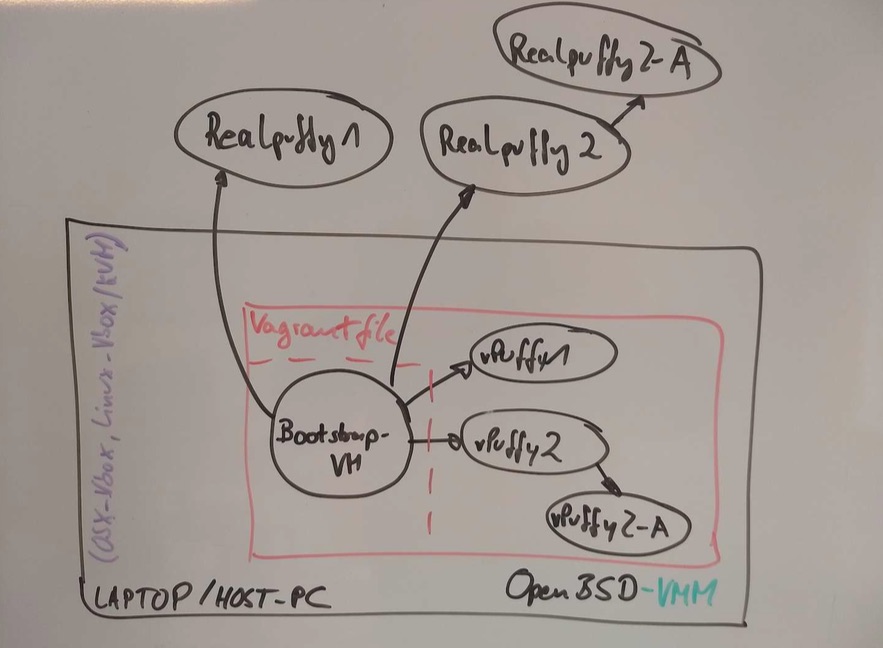 Realpuffy2-A
Realpuffy1
Realpuffy2
(OSX-Vbox, Linux-Vbox/KVM)
Vagrantfile
vPuffy1
Bootstrap-
VM
vPuffy2
vPuffy2-A
LAPTOP/HOST-PC
OpenBSD-VMM